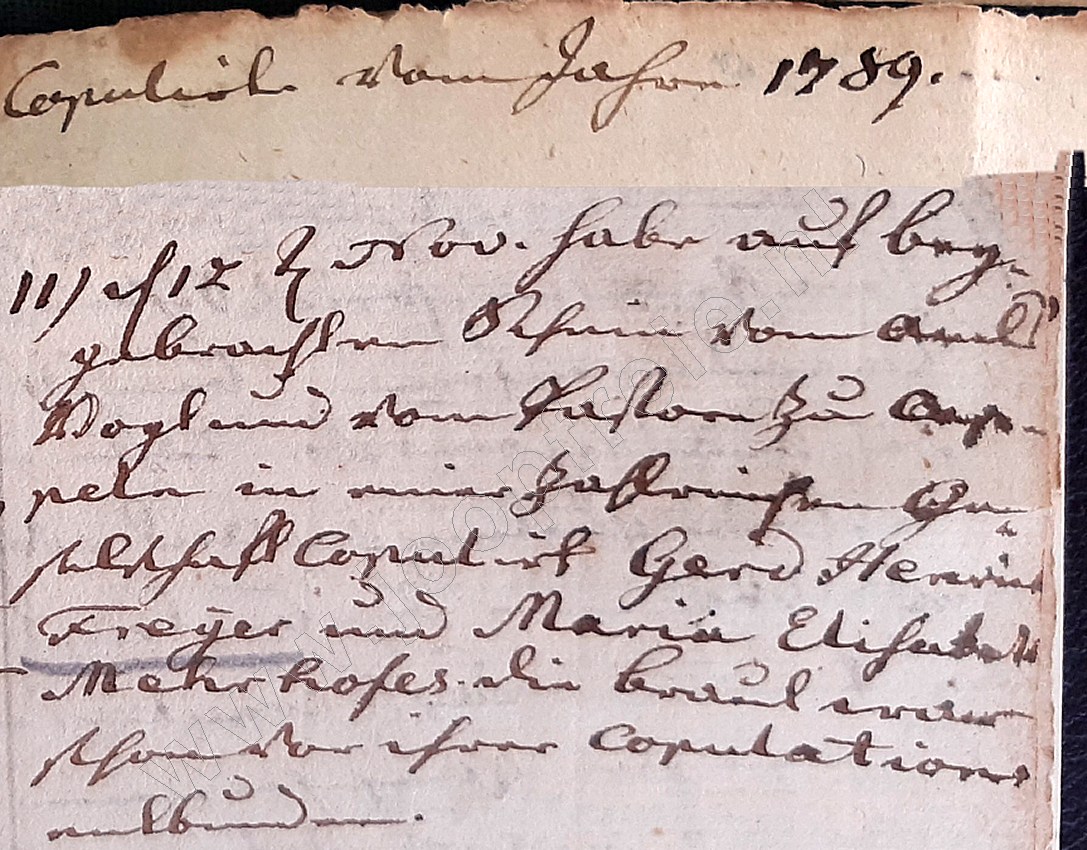 Copulirte vom Jahre 1789.
11) d 12 Nov. habe auf bey-
gebrachten Schein vom Amts
Vogt und vom Pastore zu Cap-
peln in einer zahlreichen Ge-
selschaft Copulirt Gerd Henrich
Freÿer und Maria Elisabeth
Mehrhofes. die braut war
schon vor ihrer Copulation
entbunden.
www.Joopnfreie.nl